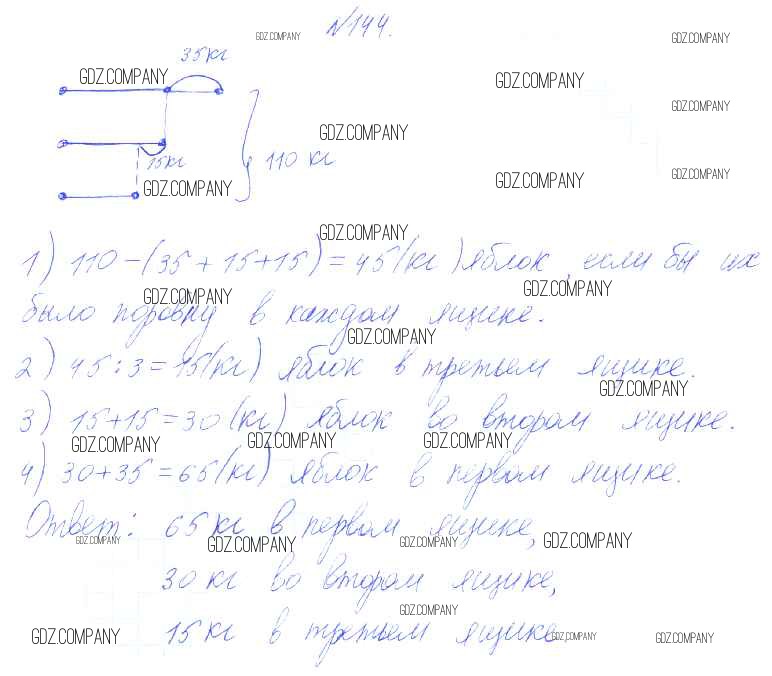 №144.
GDZ.COMPANY GDZ.COMPANY
35кг
GDZ.COMPANY GDZ.COMPANY
GDZ.COMPANY
GDZ.COMPANY
15кг 110 кг
GDZ.COMPANY GDZ.COMPANY GDZ.COMPANY
GDZ.COMPANY
1) 110-(35+15+15)=45(кг) яблок, если бы их
GDZ.COMPANY GDZ.COMPANY
было поровну в каждом ящике.
GDZ.COMPANY
2) 45:3=15(кг) яблок в третьем ящике.
GDZ.COMPANY
3) 15+15=30(кг) яблок во втором ящике.
GDZ.COMPANY GDZ.COMPANY GDZ.COMPANY
4) 30+35=65(кг) яблок в первом ящике.
Ответ: 65 кг в первом ящике,
GDZ.COMPANY GDZ.COMPANY GDZ.COMPANY GDZ.COMPANY
30 кг во втором ящике,
GDZ.COMPANY
15 кг в третьем ящике
GDZ.COMPANY GDZ.COMPANY GDZ.COMPANY